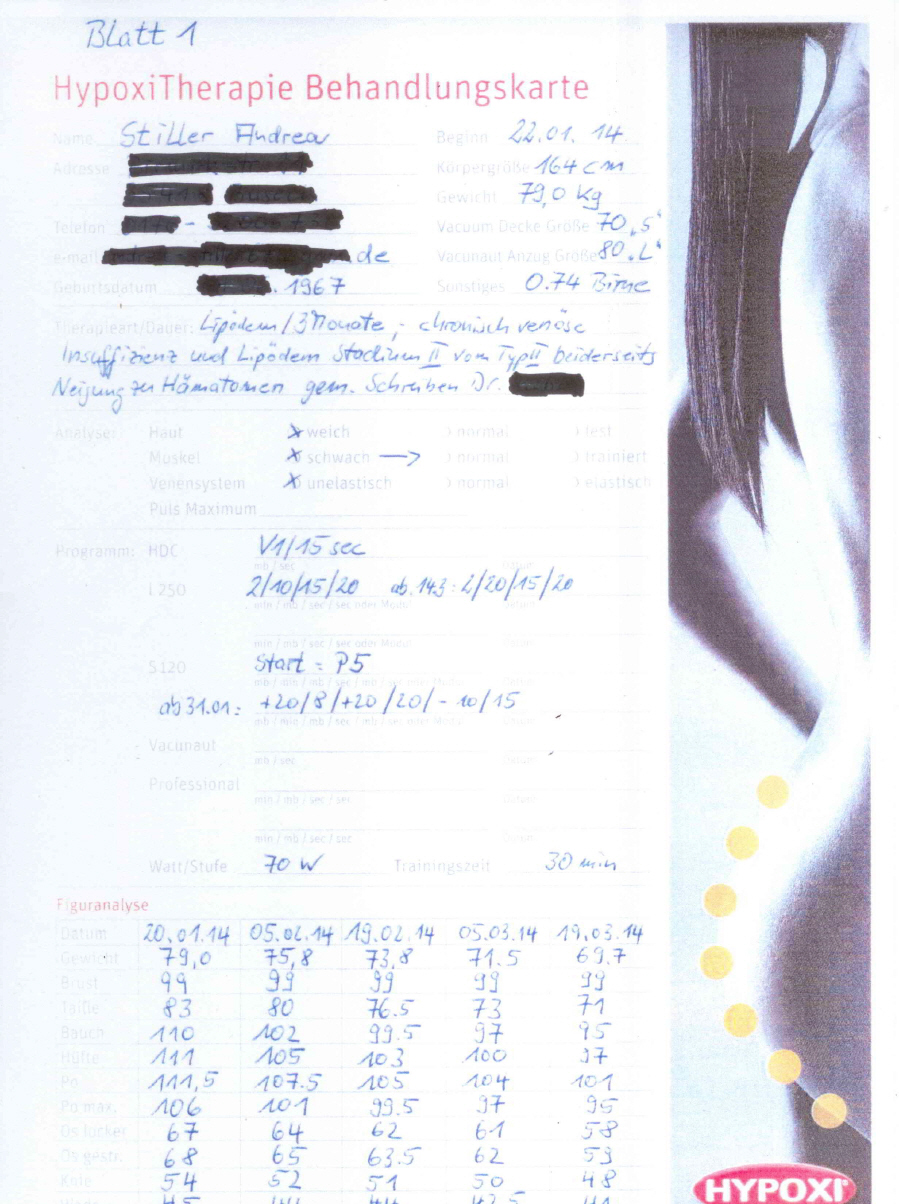 Blatt 1
HypoxiTherapie Behandlungskarte
Name Stiller Andrea Beginn 22.01.14.
Adresse Körpergröße 164 cm
Gewicht 79,0 kg
Telefon Vacuum Decke Größe 70 „S“
e-mail .de Vacunaut Anzug Größe 80 „L“
Geburtsdatum . 1967 Sonstiges 0.74 Birne
Therapieart/Dauer: Lipödem / 3 Monate, - chronisch venöse
Insuffizienz und Lipödem Stadium II vom Typ II beiderseits
Neigung zu Hämatomen gem. Schreiben Dr.
Analyse: Haut x weich normal fest
Muskel x schwach → normal trainiert
Venensystem x unelastisch normal elastisch
Puls Maximum
Programm: HDC V1/15 sec
mb / sec Datum
L250 2/10/15/20 ab 14.3: 2/20/15/20
min / mb / sec / sec oder Modul Datum
min / mb / sec / sec oder Modul Datum
S120 Start = P5
mb / min / mb / sec / mb / sec oder Modul Datum
ab 31.01: +20/8/+20/20/-10/15
mb / min / mb / sec / mb / sec oder Modul Datum
Vacunaut
mb / sec Datum
Professional
min / mb / sec / sec Datum
min / mb / sec / sec Datum
Watt/Stufe 70 W Trainingszeit 30 min
Figuranalyse
Datum 20.01.14 05.02.14 19.02.14 05.03.14 19.03.14
Gewicht 79,0 75,8 73,8 71.5 69,7
Brust 99 99 99 99 99
Taille 83 80 76.5 73 71
Bauch 110 102 99.5 97 95
Hüfte 111 105 103 100 97
Po 111,5 107.5 105 104 101
Po max. 106 101 99.5 97 95
Os locker 67 64 62 61 58
Os gestr. 68 65 63.5 62 59
Knie 54 52 51 50 48
HYPOXI